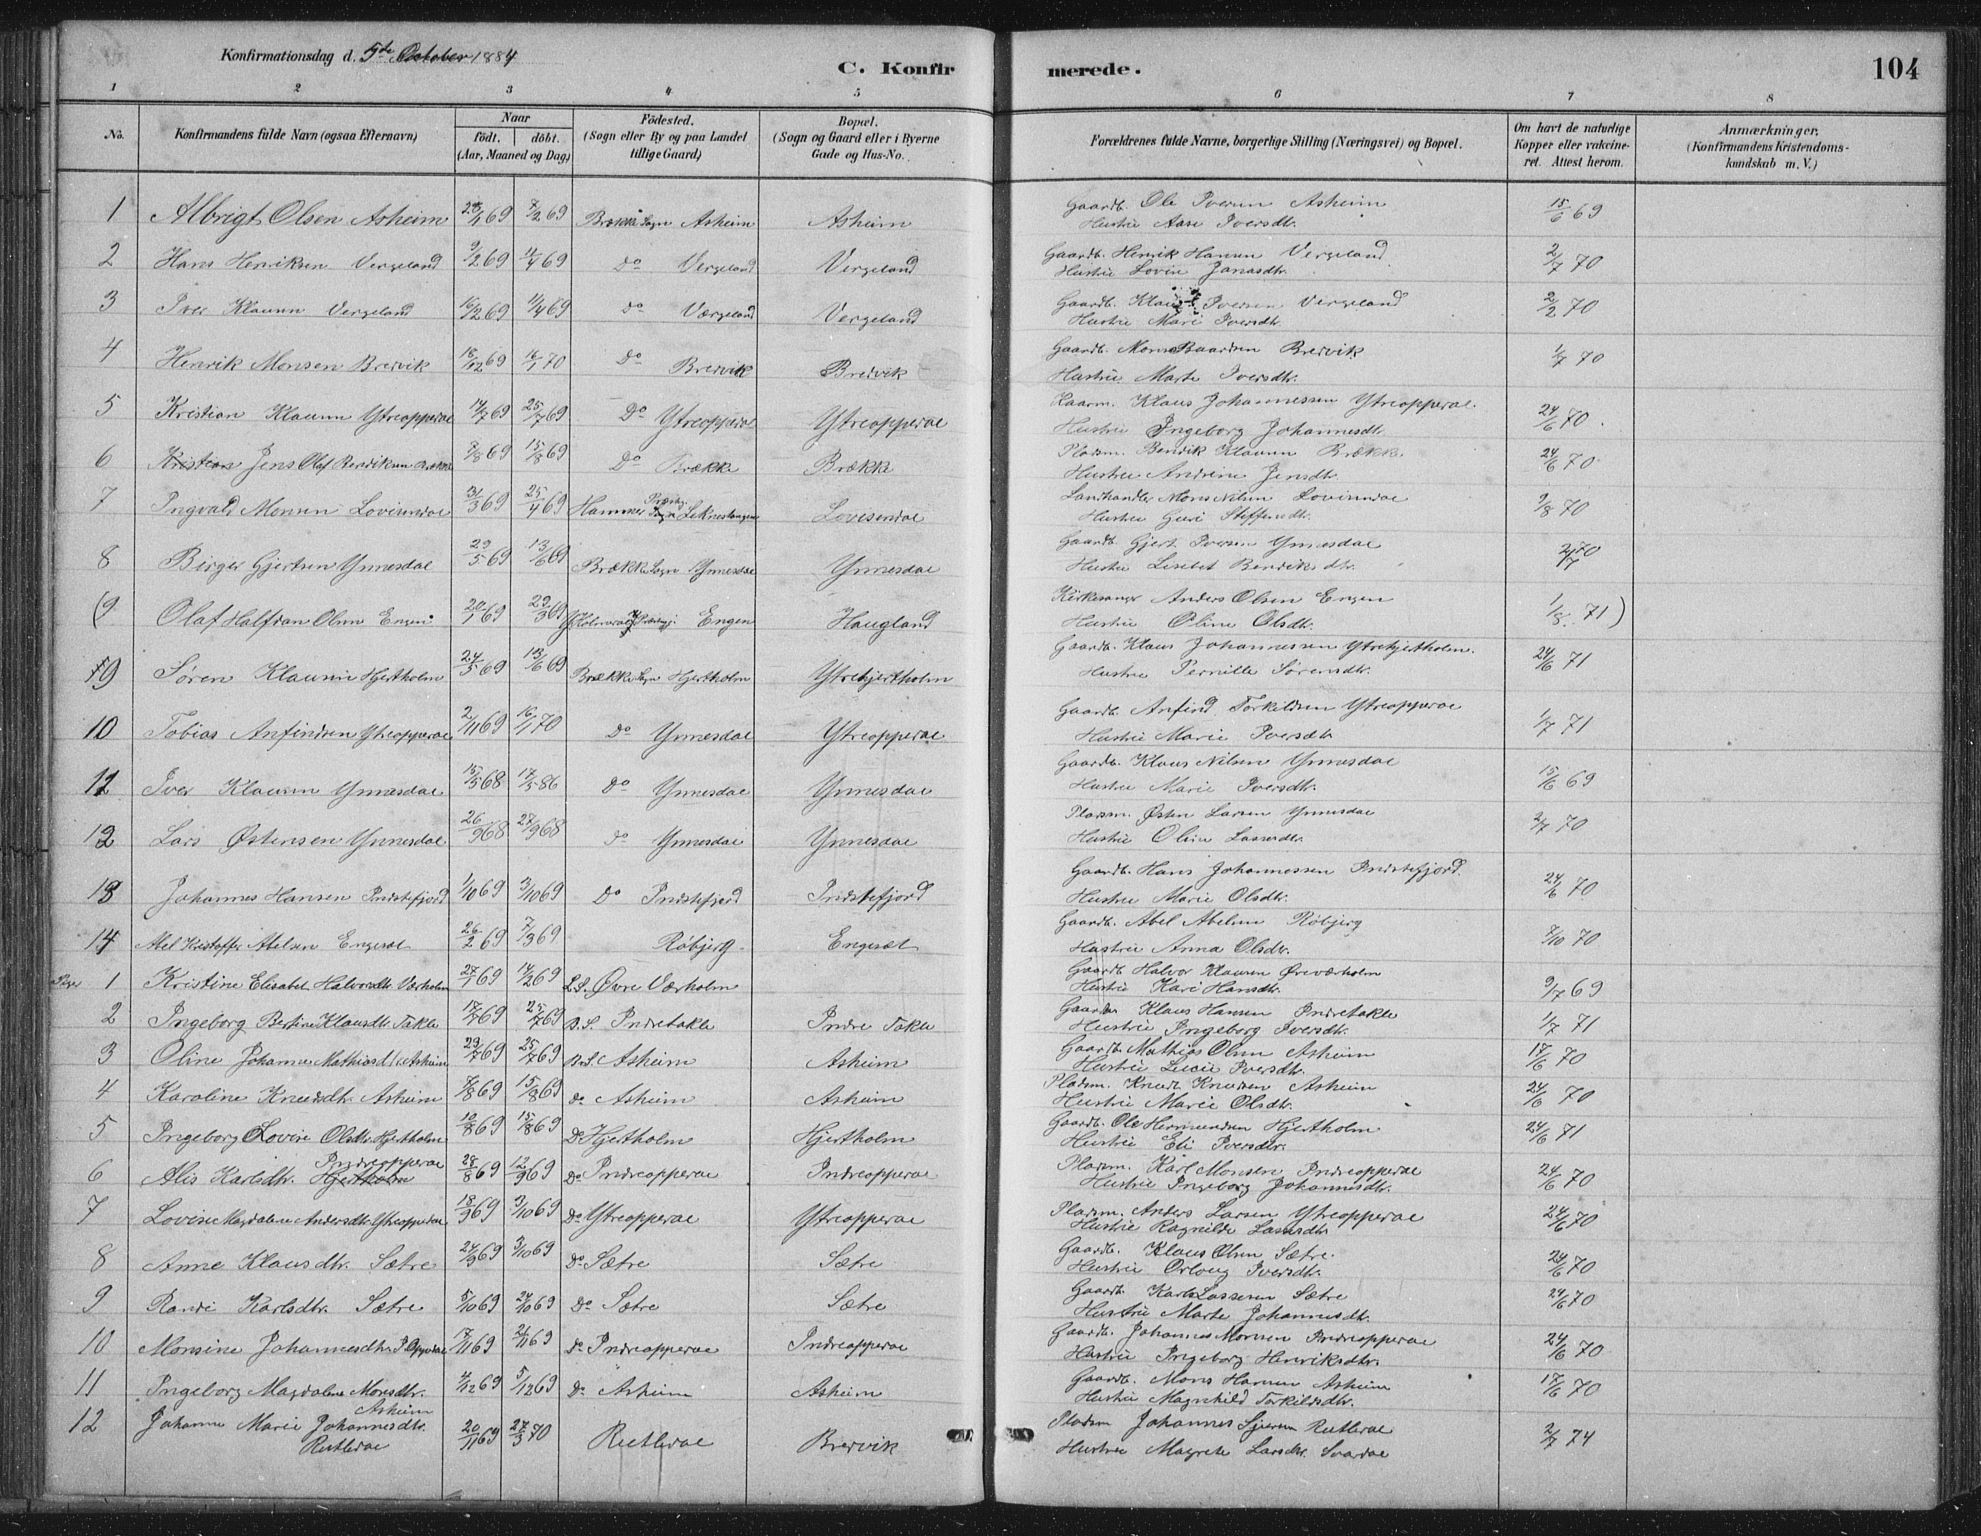 Konfirmationsdag d. 5te October 1884
C. Konfirmerede.
104
1 2 3 4 5 6 7 8
No. Konfirmandens fulde Navn (ogsaa Efternavn) Naar født. døbt. (Aar, Maaned og Dag) Fødested. (Sogn eller By og paa Landet tillige Gaard) Bopæl. (Sogn og Gaard eller i Byerne Gade og Hus-No. Forældrenes fulde Navne, borgerlige Stilling (Næringsvei) og Bopæl. Om havt de naturlige Kopper eller vakcineret. Attest herom. Anmærkninger. (Konfirmandens Kristendomskundskab m. V.)
1 Albrigt Olsen Asheim 7/2 69 Brække Sogn Asheim Asheim Gaardb. Ole Iversen Asheim Hustru Aase Iversdtr. 15/6 69
2 Hans Henriksen Vergeland 9/2 69 11/4 69 Do Vergeland Vergeland Gaardb. Henrik Hansen Vergeland Hustru Lovise Jonasdtr. 2/7 70
3 Iver Klausen Vergeland 16/2 69 11/4 69 Do Værgeland Vergeland Gaardb. Klaus Iversen Vergeland Hustru Mari Iversdtr. 2/2 70
4 Henrik Monsen Brervik 18/12 69 16/1 70 Do Brervik Brervik Gaardb. Mons Baardsen Brervik Hustru Marte Iversdtr. 1/7 70
5 Kristian Klausen Ytreopperae 14/7 69 25/7 69 Do Ytreopperae Ytreopperae Kaarm. Klaus Johannessen Ytreopperae. Hustru Ingeborg Johannesdtr. 24/6 70.
6 Kristian Jens Olaf Bendiksen Brække 7/8 69 15/8 69 Do Brække Brække Pladsm. Bendik Klausen Brække Hustru Andrine Jensdtr. 24/6 70
7 Ingvald Monsen Lovisendae 31/3 69 25/4 69 Hammer Præstgj. Sogn Leknestangen Lovisendae Landhandler Mons Nilsen Lovisendae Hustru Guri Steffensdtr. 9/8 70
8 Birger Gjertsen Ynnesdae 29/5 69 13/6 69 Brække Sogn Ynnesdae Ynnesdae Gaardb. Gjert Iversen Ynnesdae Hustru Lisebet Bendiksdtr. 2/7 70
(9 Olaf Halfdan Olsen Engen 20/1 69 29/3 69 Engen Haugland Kirkesanger Anders Olsen Engen Hustru Oline Olsdtr. 1/8. 71)
9 Søren Klausen Hjertholm 24/5 69 13/6 69 Brække Sogn Hjertholm Ytrehjertholm Gaardb. Klaus Johannessen Ytrehjertholm. Hustru Pernille Sørensdtr. 24/6 71
10 Tobias Anfindsen Ytreopperae 2/11 69 16/1 70 Do Ynnesdae Ytreopperae Gaardb. Anfind Torkildsen Ytreopperae Hustru Marie Iversdtr. 1/7 71
11 Iver Klausen Ynnesdae 15/5 68 17/5 86 Do Ynnesdae Ynnesdae Gaardb. Klaus Nilsen Ynnesdae Hustru Marie Iversdtr. 15/6 69
12 Lars Østensen Ynnesdae 26/9 68 27/9 68 Do Ynnesdae Ynnesdae Pladsm. Østen Larsen Ynnesdae Hustru Oline Lassesdtr. 2/7 70
13 Johannes Hansen Indstefjord 1/10 69 3/10 69 Do Indstefjord Indstefjord Gaardb. Hans Johannessen Indstefjord. Hustru Marie Olsdtr. 24/6 70
14 Abel Kristoffer Abelsen Engesæt 26/2 69 7/3 69 Røbjerg Engesæt Gaardb. Abel Abelsen Røbjerg Hustru Anna Olsdtr. 7/10 70
Piger 1 Kristine Elisabet Halvorsdtr. Værholm 27/1 69 14/2 69 L.S. Øvre Værholm Gaardb. Halvor Klausen Øvreværholm Hustru Kari Hansdtr. 9/7 69
2 Ingeborg Bertine Klausdtr. Takle 17/7 69 25/7 69 B.S. Indretakle Indre Takle Gaardb. Klaus Hansen Indretakle Hustru Ingeborg Iversdtr. 1/7 71
3 Oline Johanne Mathiasdtr. Asheim 29/7 69 25/7 69 B.S. Asheim Asheim Gaardb. Mathias Olsen Asheim Hustru Lucie Iversdtr. 17/6 70
4 Karoline Knudsdtr. Asheim 7/8 69 15/8 69 Do Asheim Asheim Pladsm. Knud Knudsen Asheim Hustru Marie Olsdtr. 24/6 70
5 Ingeborg Lovise Olsdtr. Hjertholm 10/8 69 15/8 69 Do Hjertholm Hjertholm Gaardb. Ole Hermundsen Hjertholm Hustru Eli Iversdtr. 24/6 71
6 Alis Karlsdtr. Hjertholm Indreopperae 28/8 69 12/9 69 Do Indreopperae Indreopperae Pladsm. Karl Monsen Indreopperae Hustru Ingeborg Johannesdtr. 24/6 70
7 Lovise Magdalene Andersdtr. Ytreopperae 18/9 69 3/10 69 Do Ytreopperae Ytreopperae Pladsm. Anders Larsen Ytreopperae Hustru Ragnilde Lassesdtr. 24/6 70
8 Anne Klausdtr. Sætre 24/9 69 3/10 69 Do Sætre Sætre Gaardb. Klaus Olsen Sætre. Hustru Orloug Iversdtr. 24/6 70
9 Randi Karlsdtr. Sætre 5/10 69 24/10 69 Do Sætre Sætre Gaardb. Karl Lassesen Sætre Hustru Marte Johannesdtr. 24/6 70
10 Monsine Johannesdtr. I. Opperae 7/11 69 21/11 69 Do Indreopperae Indreopperae Gaardb. Johannes Monsen Indreopperae Hustru Ingeborg Henriksdtr. 24/6 70
11 Ingeborg Magdalene Monsdtr. Asheim 4/12 69 5/12 69 Do Asheim Asheim Gaardb. Mons Hansen Asheim Hustru Magnhild Torkildsdtr. 17/6 70
12 Johanne Marie Johannesdtr. Rutledae 20/11 69 27/3 70 Rutledae Brervik Pladsm Johannes Rutledae Hustru Magrete Larsdtr. Svardae 2/7 74